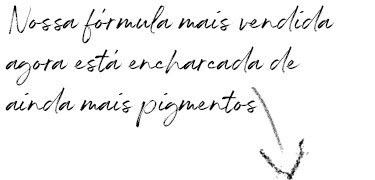 Nossa fórmula mais vendida
agora está encharcada de
ainda mais pigmentos